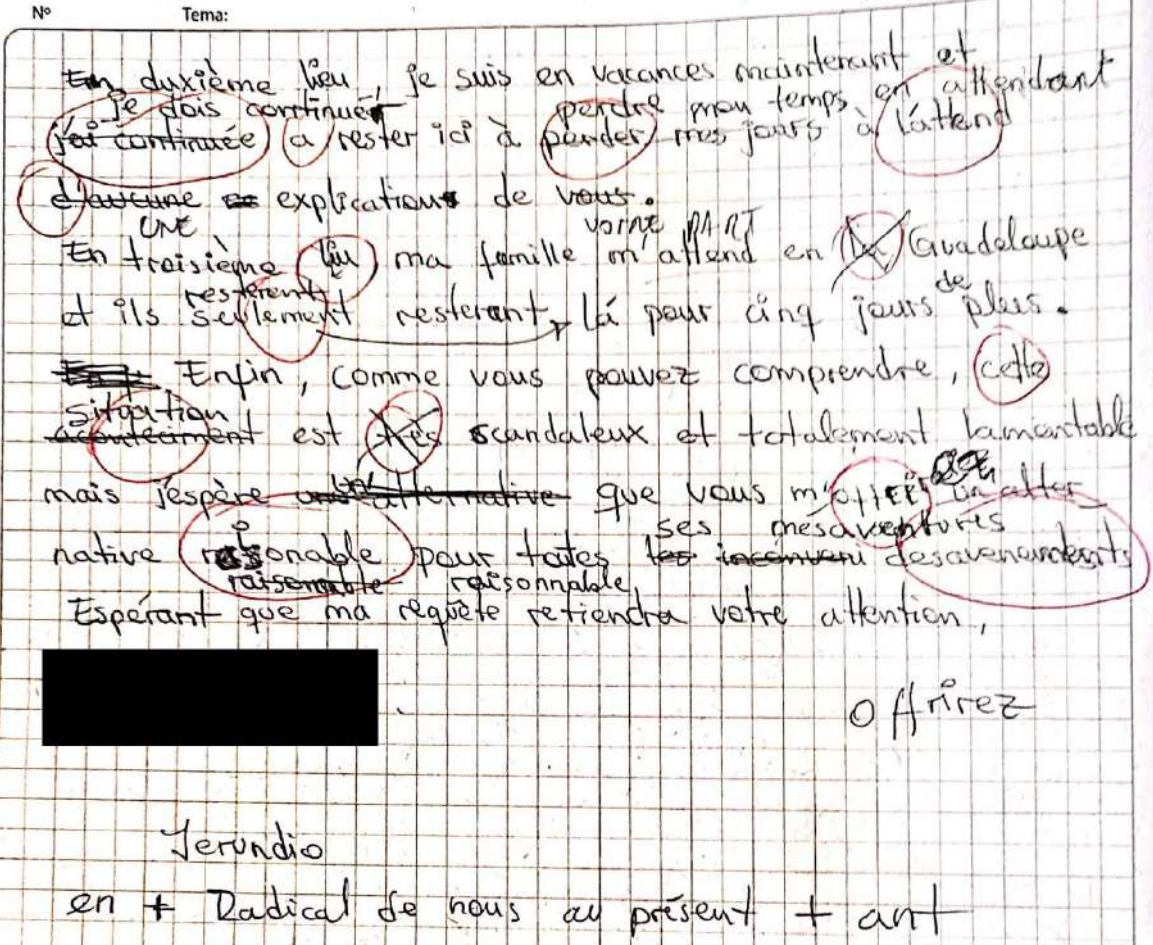 Nº Tema:
En duxième lieu, je suis en vacances maintenant et
je dois continuer perdre mon temps en attendant
j'ai continuée a rester ici à perder mes jours à l'áttend
d'aucune explications de vous.
UNE VOTRE PART
En troisième lieu ma famille m'attend en Guadeloupe
resterent de
et ils seulement resterant là pour cinq jours plus.
Enfin, comme vous pouvez comprendre, cette
situation
acontecimént est très scandaleux et totalement lamentable
mais j'espère un alternative que vous m'offrer un alter
ses mésaventures
native resonable pour toutes les inconveni desavenements
raisonable raisonnable
Espérant que ma requête retiendra votre attention,
Offrirez
Jerundio
en + Radical de nous au présent + ant